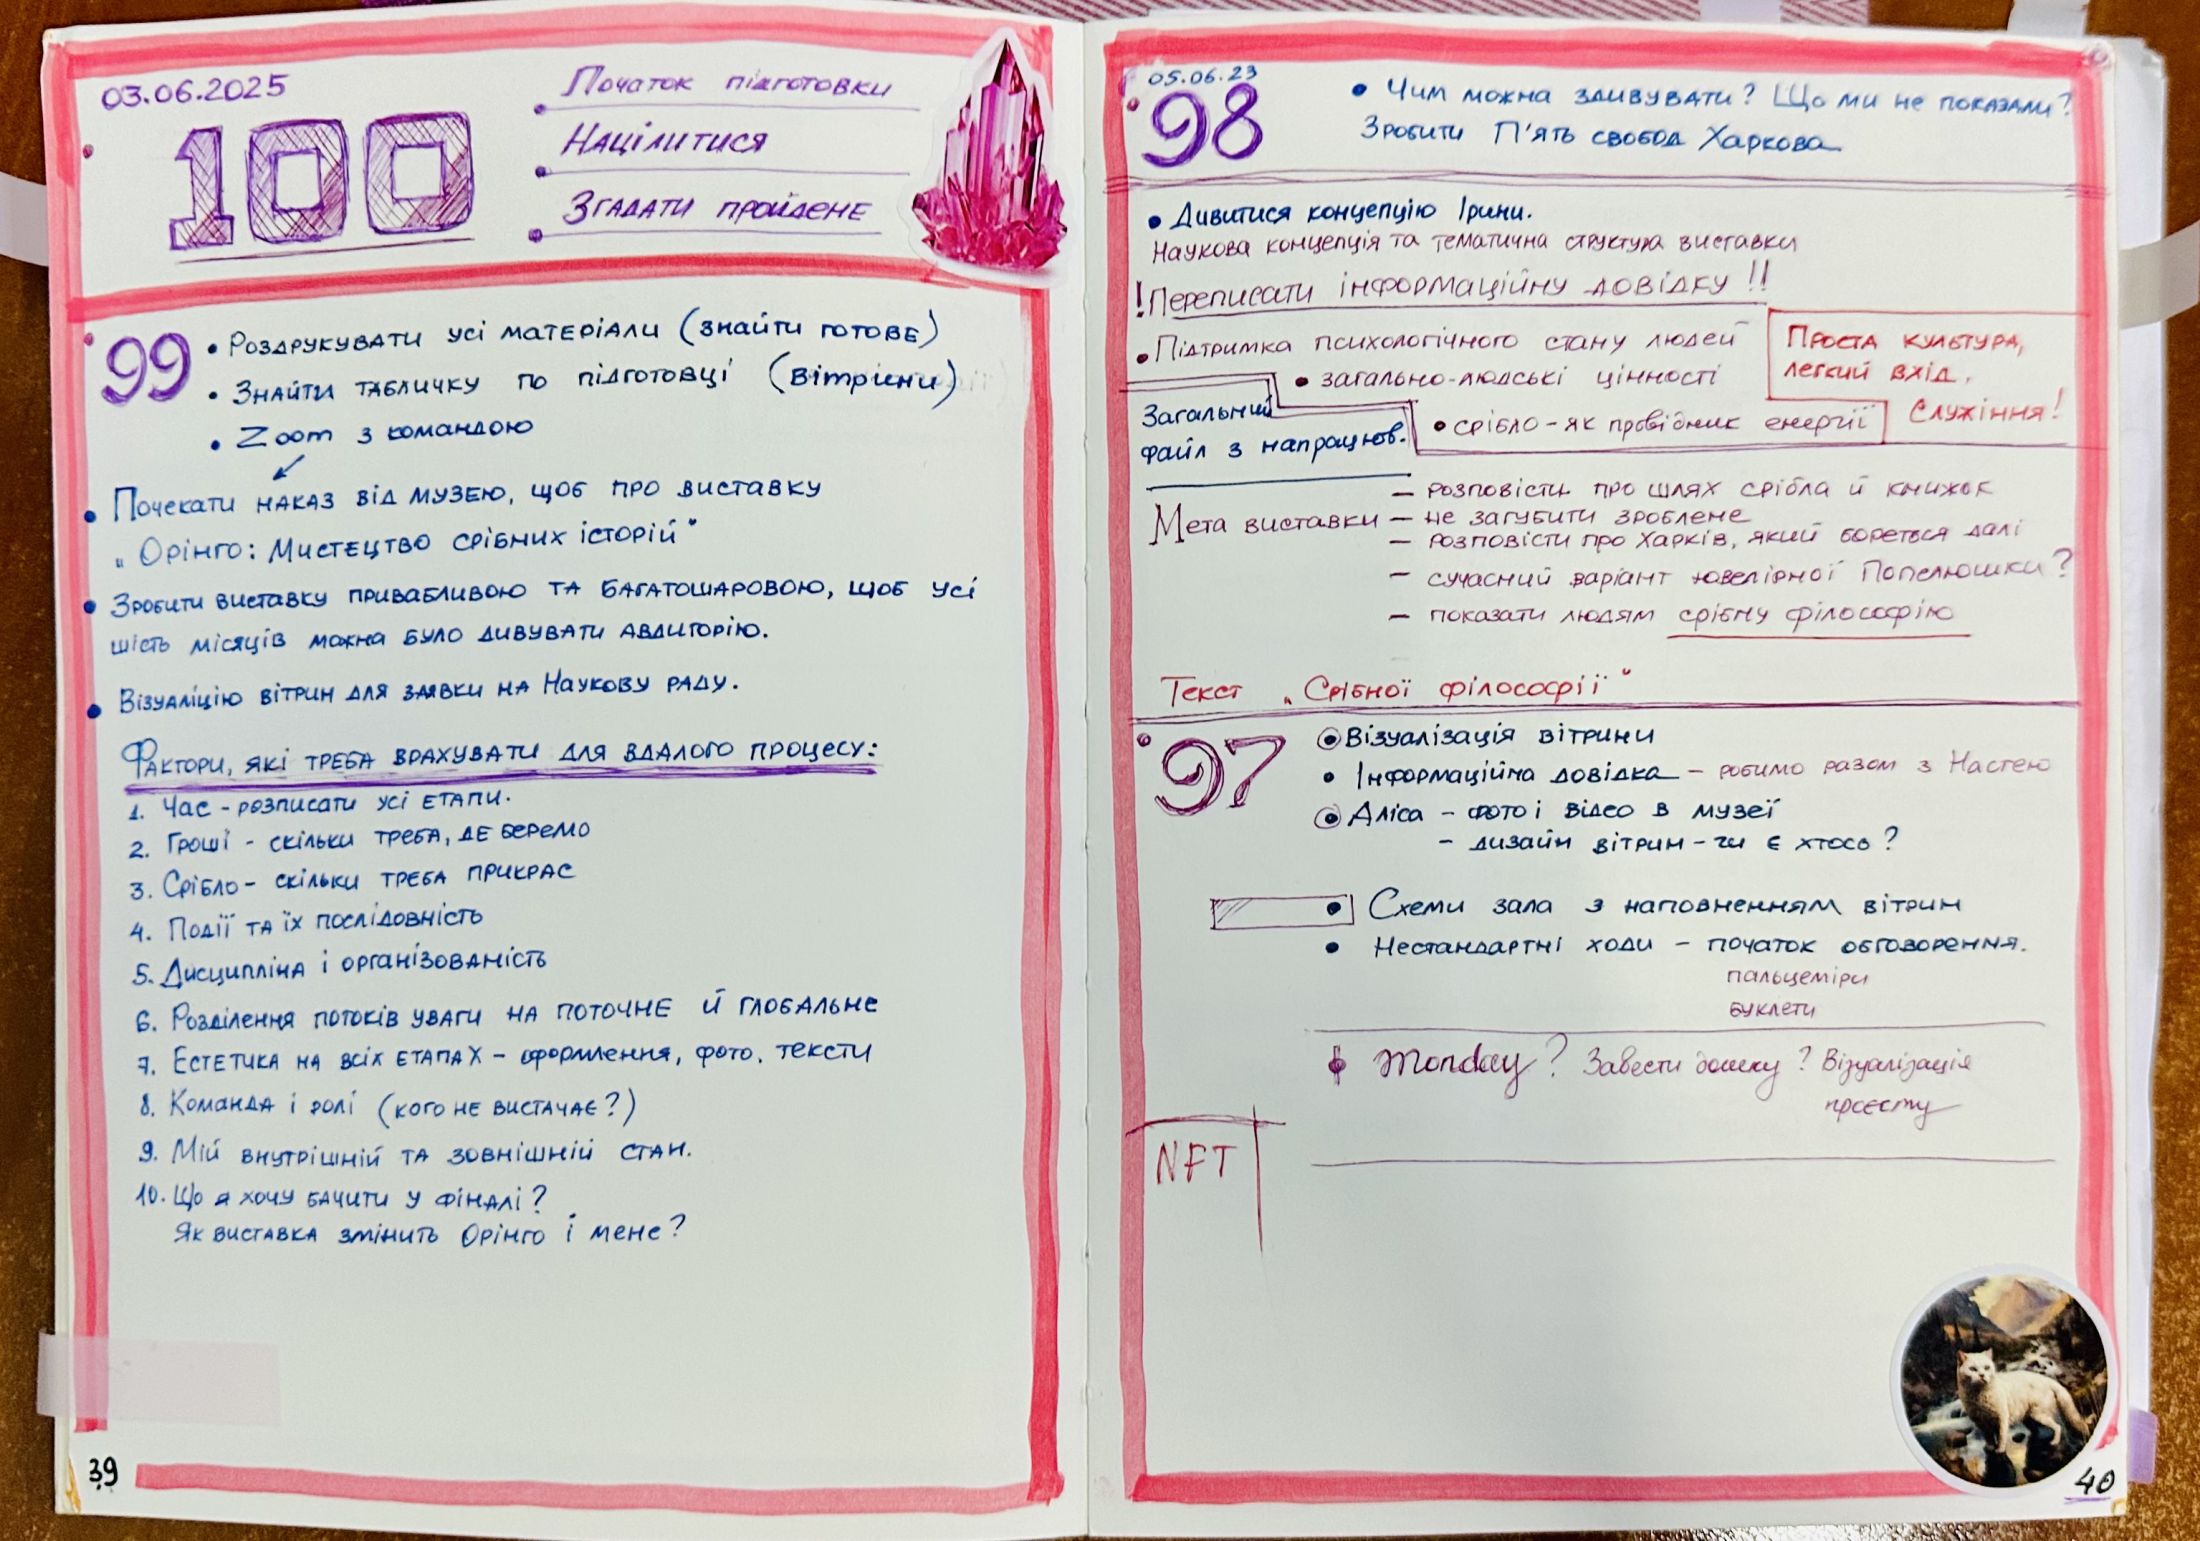 03.06.2025
100
Початок підготовки
Націлитися
Згадати пройдене
99
• Роздрукувати усі матеріали (знайти готове)
• Знайти табличку по підготовці (вітрини)
• Zoom з командою
• Почекати наказ від музею, щоб про виставку
„Орінго: Мистецтво срібних історій"
• Зробити виставку привабливою та багатошаровою, щоб усі
шість місяців можна було дивувати авдиторію.
• Візуаліцію вітрин для заявки на Наукову раду.
Фактори, які треба врахувати для вдалого процесу:
1. Час - розписати усі етапи.
2. Гроші - скільки треба, де беремо
3. Срібло - скільки треба прикрас
4. Події та їх послідовність
5. Дисципліна і організованість
6. Розділення потоків уваги на поточне й глобальне
7. Естетика на всіх етапах - оформлення, фото, тексти
8. Команда і ролі (кого не вистачає?)
9. Мій внутрішній та зовнішній стан.
10. Що я хочу бачити у фіналі?
Як виставка змінить Орінго і мене?
39
05.06.23
98
• Чим можна здивувати? Що ми не показали?
Зробити П'ять свобод Харкова
• Дивитися концепцію Ірини.
Наукова концепція та тематична структура виставки
! Переписати інформаційну довідку !!
• Підтримка психологічного стану людей
• загально-людські цінності
• срібло - як провідник енергії
Проста культура,
легкий вхід,
Служіння!
Загальний
файл з напрацюв.
Мета виставки
– розповісти про шлях срібла й книжок
– не загубити зроблене
– розповісти про Харків, який бореться далі
– сучасний варіант ювелірної Попелюшки?
– показати людям срібну філософію
Текст „Срібної філософії"
97
• Візуалізація вітрини
• Інформаційна довідка – робимо разом з Настею
• Аліса – фото і відео в музеї
– дизайн вітрин – чи є хтось?
• Схеми зала з наповненням вітрин
• Нестандартні ходи – початок обговорення.
пальцеміри
буклети
Monday? Завести дошку? Візуалізація
проєкту
NFT
40